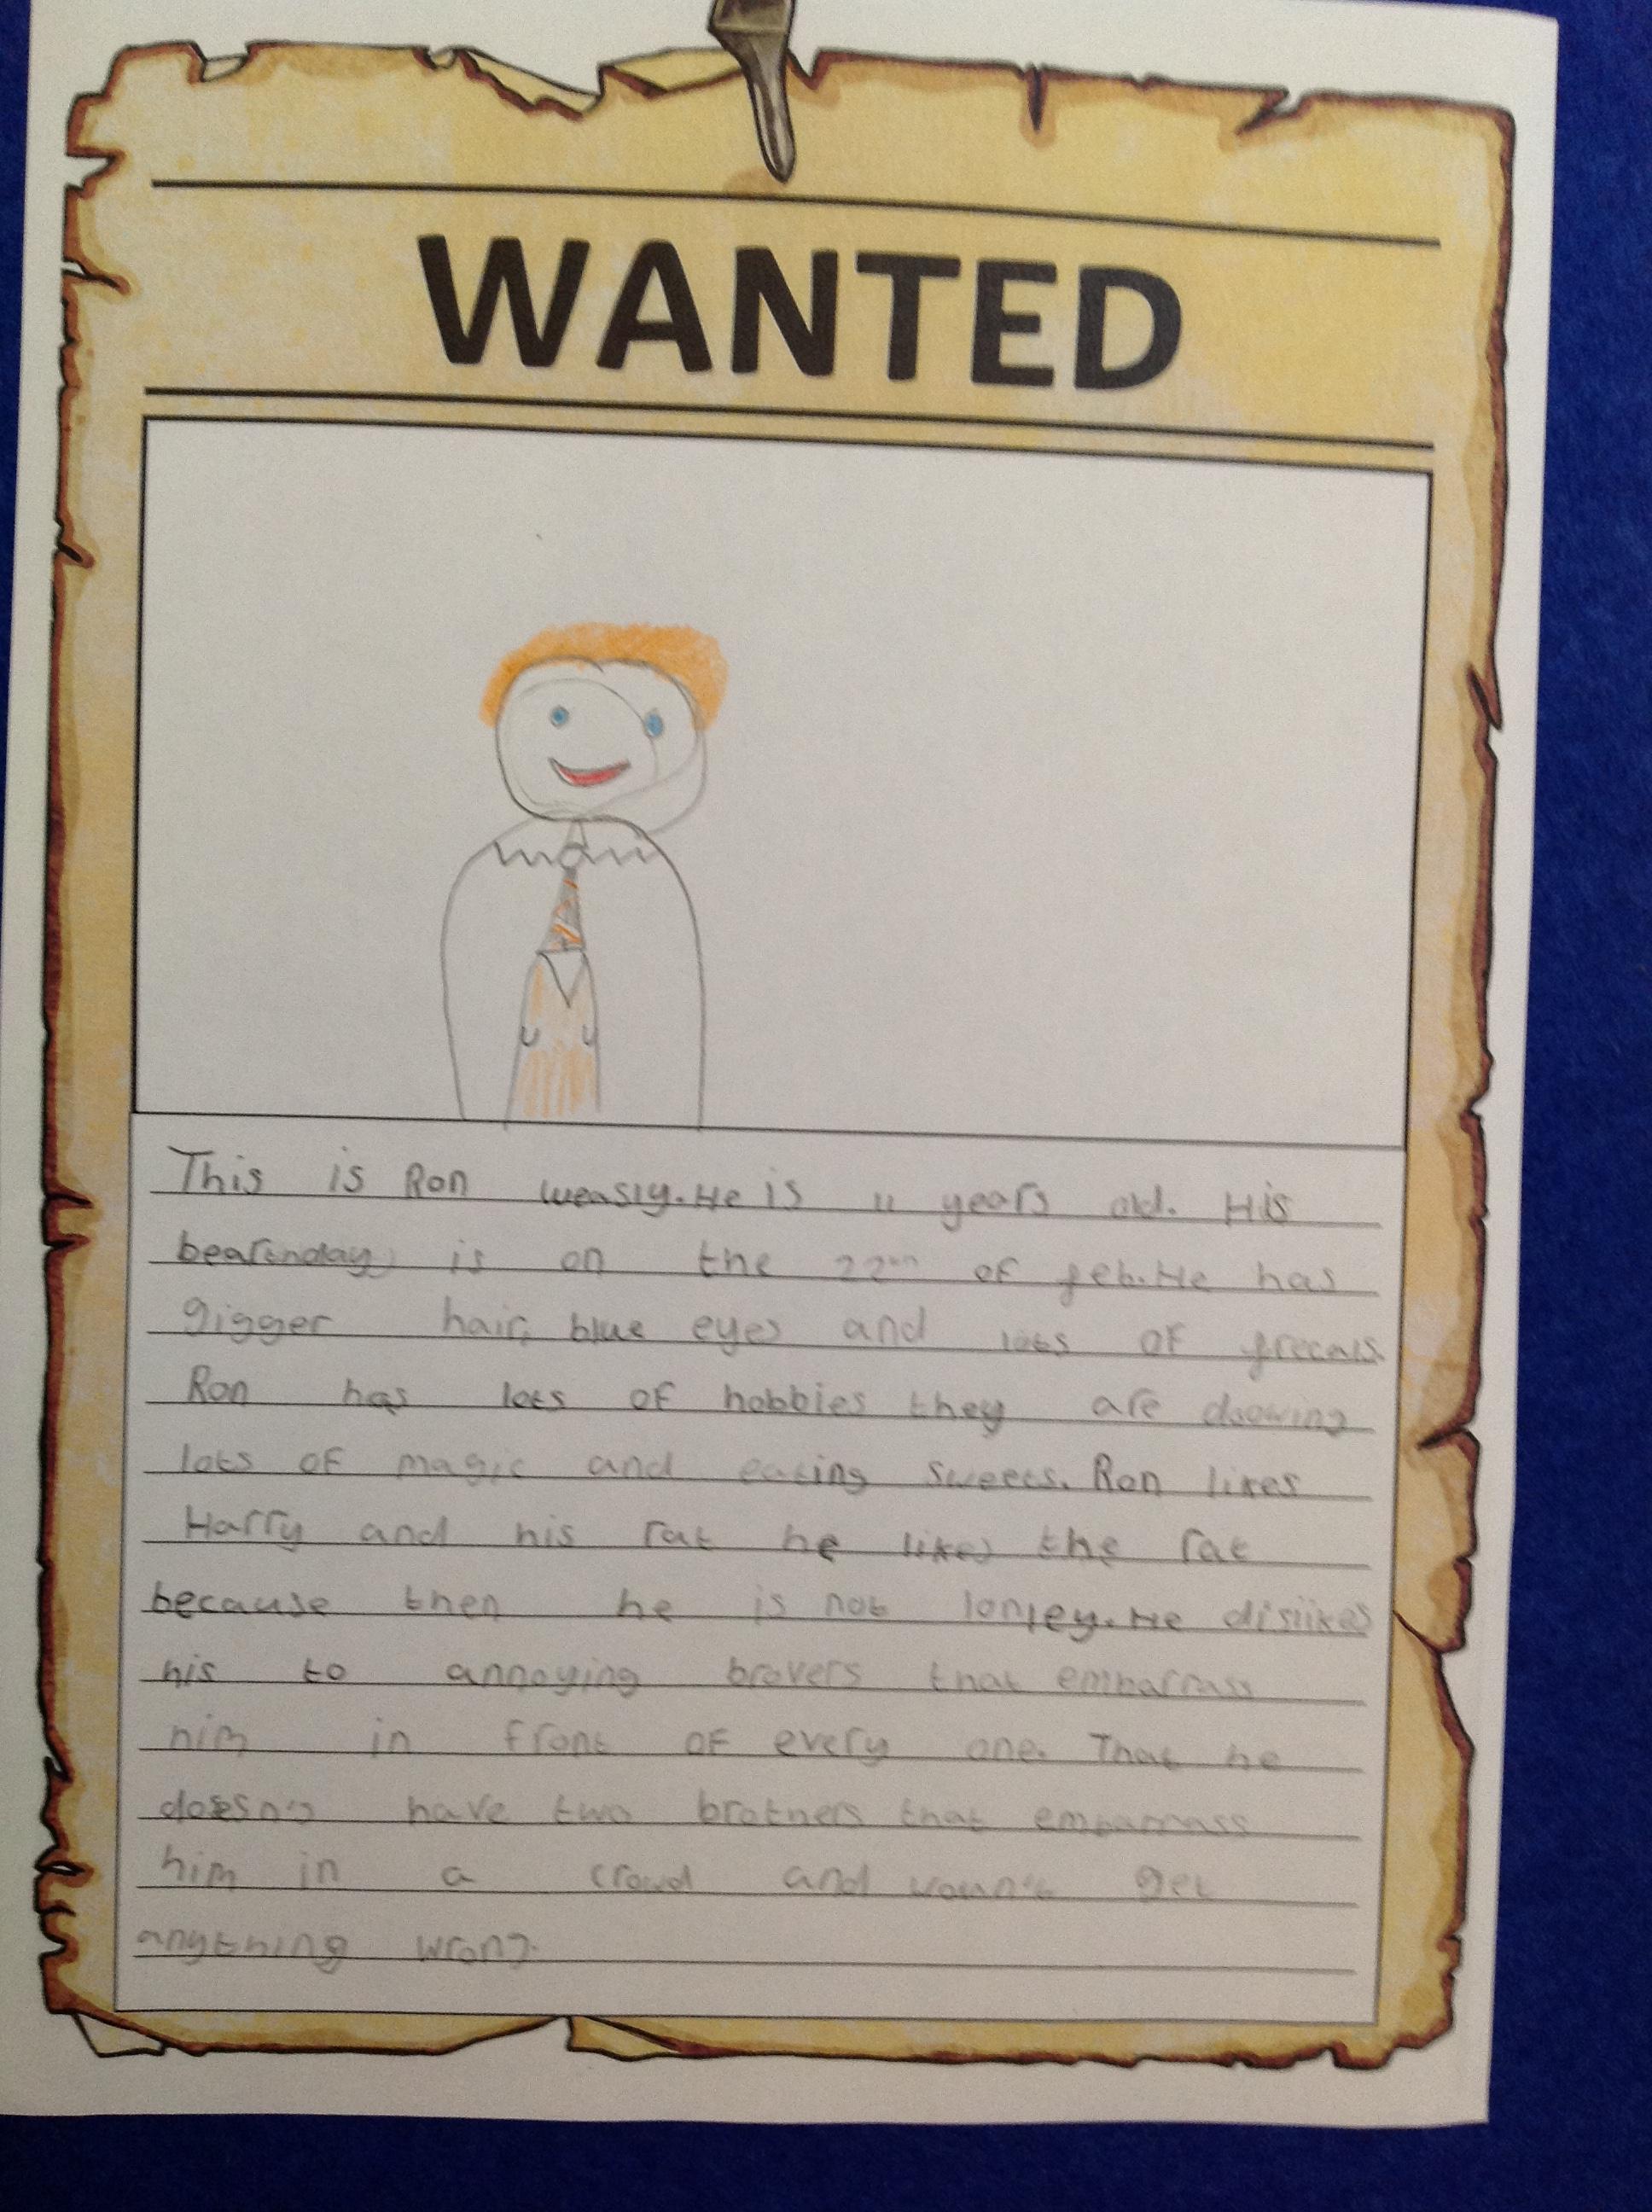 WANTED
This is Ron weasly. He is 11 years old. His
is on the 22nd of feb. He has
gigger hair, blue eyes and lots of frecals.
Ron has lots of hobbies they are doowing
lots of magic and eating sweets. Ron likes
Harry and his rat he likes the rat
because then he is not lonley. He dislikes
his to annoying brovers that embarrass
him in front of every one. That he
doesn't have two brothers that embarrass
him in a crowd and get
anything wrong.